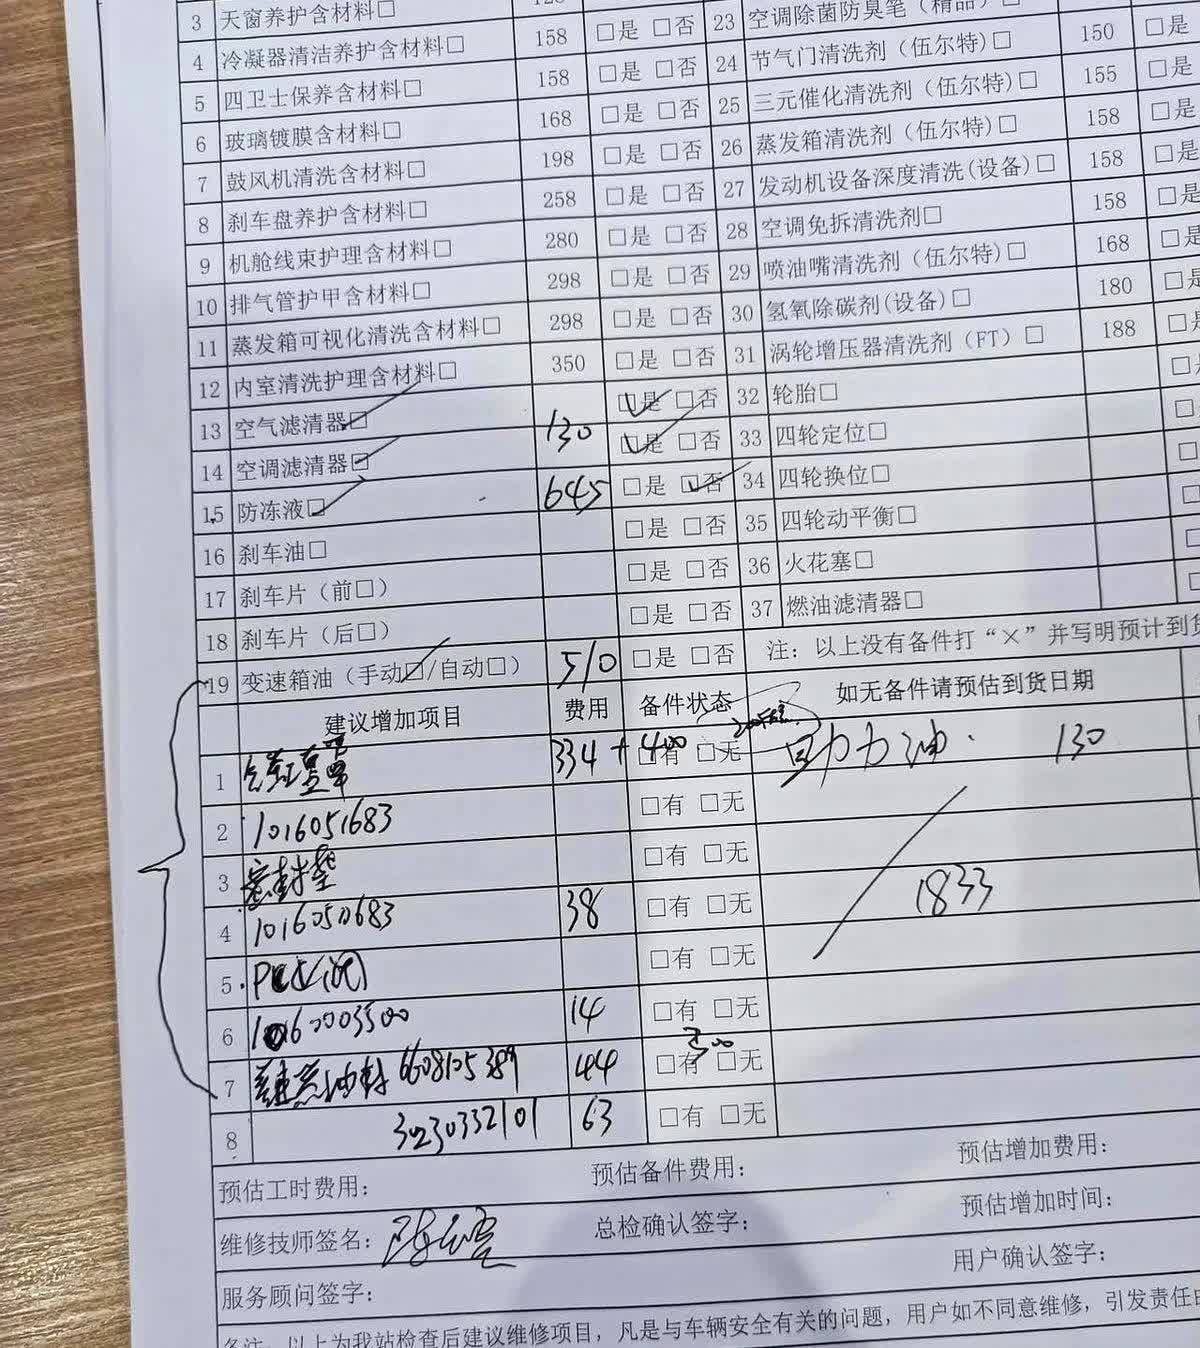 3 天窗养护含材料□
4 冷凝器清洁养护含材料□ 158 □是 □否 23 空调除菌防臭笔（精品）□ □是
5 四卫士保养含材料□ 158 □是 □否 24 节气门清洗剂（伍尔特)□ 150 □是
6 玻璃镀膜含材料□ 168 □是 □否 25 三元催化清洗剂（伍尔特)□ 155 □是
7 鼓风机清洗含材料□ 198 □是 □否 26 蒸发箱清洗剂（伍尔特)□ 158 □是
8 刹车盘养护含材料□ 258 □是 □否 27 发动机设备深度清洗(设备)□ 158 □是
9 机舱线束护理含材料□ 280 □是 □否 28 空调免拆清洗剂□ 158 □是
10 排气管护甲含材料□ 298 □是 □否 29 喷油嘴清洗剂（伍尔特)□ 168 □是
11 蒸发箱可视化清洗含材料□ 298 □是 □否 30 氢氧除碳剂(设备)□ 180 □是
12 内室清洗护理含材料□ 350 □是 □否 31 涡轮增压器清洗剂（FT）□ 188 □是
13 空气滤清器□ □是 □否 32 轮胎□
14 空调滤清器□ 130 □是 □否 33 四轮定位□
15 防冻液□ 645 □是 □否 34 四轮换位□
16 刹车油□ □是 □否 35 四轮动平衡□
17 刹车片（前□） □是 □否 36 火花塞□
18 刹车片（后□） □是 □否 37 燃油滤清器□
19 变速箱油（手动□/自动□） 510 □是 □否 注：以上没有备件打“×”并写明预计到货
建议增加项目 费用 备件状态 如无备件请预估到货日期
1 334 + 400 □有 □无 助力油 130
2 1016051683 □有 □无
3 密封垫 □有 □无
4 1016050683 38 □有 □无 1833
5 □有 □无
6 10160003500 14 □有 □无
300
7 6608105389 44 □有 □无
8 3230332101 63 □有 □无
预估工时费用： 预估备件费用： 预估增加费用：
维修技师签名： 总检确认签字： 预估增加时间：
服务顾问签字： 用户确认签字：
备注：以上为我站检查后建议维修项目，凡是与车辆安全有关的问题，用户如不同意维修，引发责任由